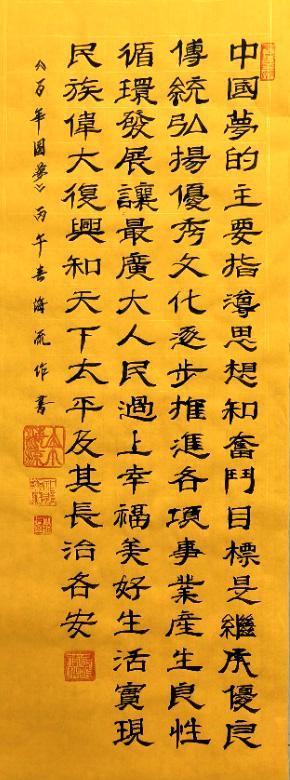 中国夢的主要指導思想和奮鬥目標是繼承優良
傳統弘揚優秀文化逐步推進各項事業産生良性
循環發展讓最廣大人民過上幸福美好生活實現
民族偉大復興和天下太平及其長治各安
《百年國夢》丙午春海流作書